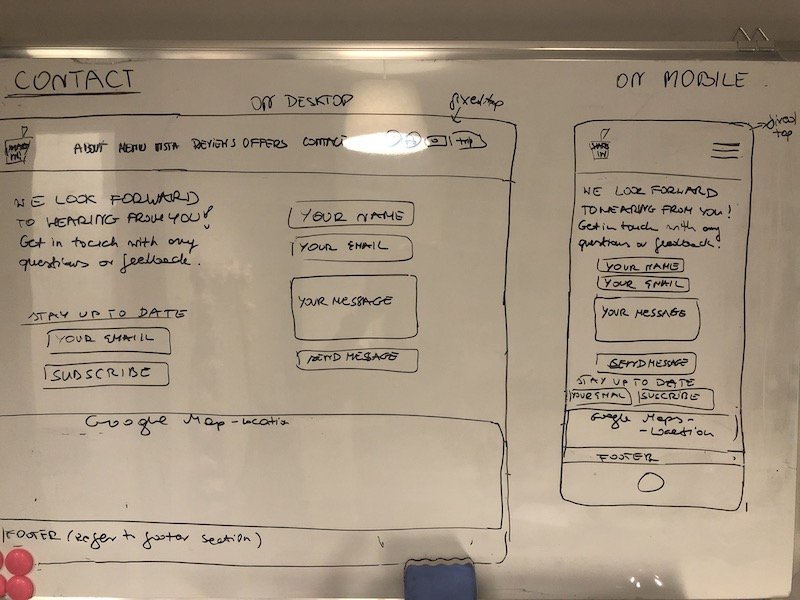 CONTACT
ON DESKTOP
fixed top
ABOUT MENU VISTA REVIEWS OFFERS CONTACT
WE LOOK FORWARD
TO HEARING FROM YOU!
Get in touch with any
questions or feedback.
YOUR NAME
YOUR EMAIL
YOUR MESSAGE
SEND MESSAGE
STAY UP TO DATE
YOUR EMAIL
SUBSCRIBE
Google Map - Location
FOOTER (Refer to footer section)
ON MOBILE
fixed
top
WE LOOK FORWARD
TO HEARING FROM YOU!
Get in touch with any
questions or feedback.
YOUR NAME
YOUR EMAIL
YOUR MESSAGE
SEND MESSAGE
STAY UP TO DATE
YOUR EMAIL
SUCCRIBE
Google Maps -
- Location
FOOTER